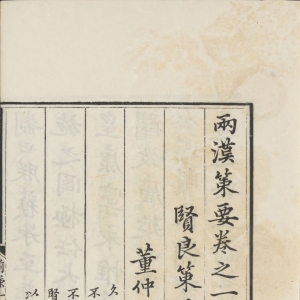 兩漢策要卷之一
賢良策
董仲
久
不
不
賢
以